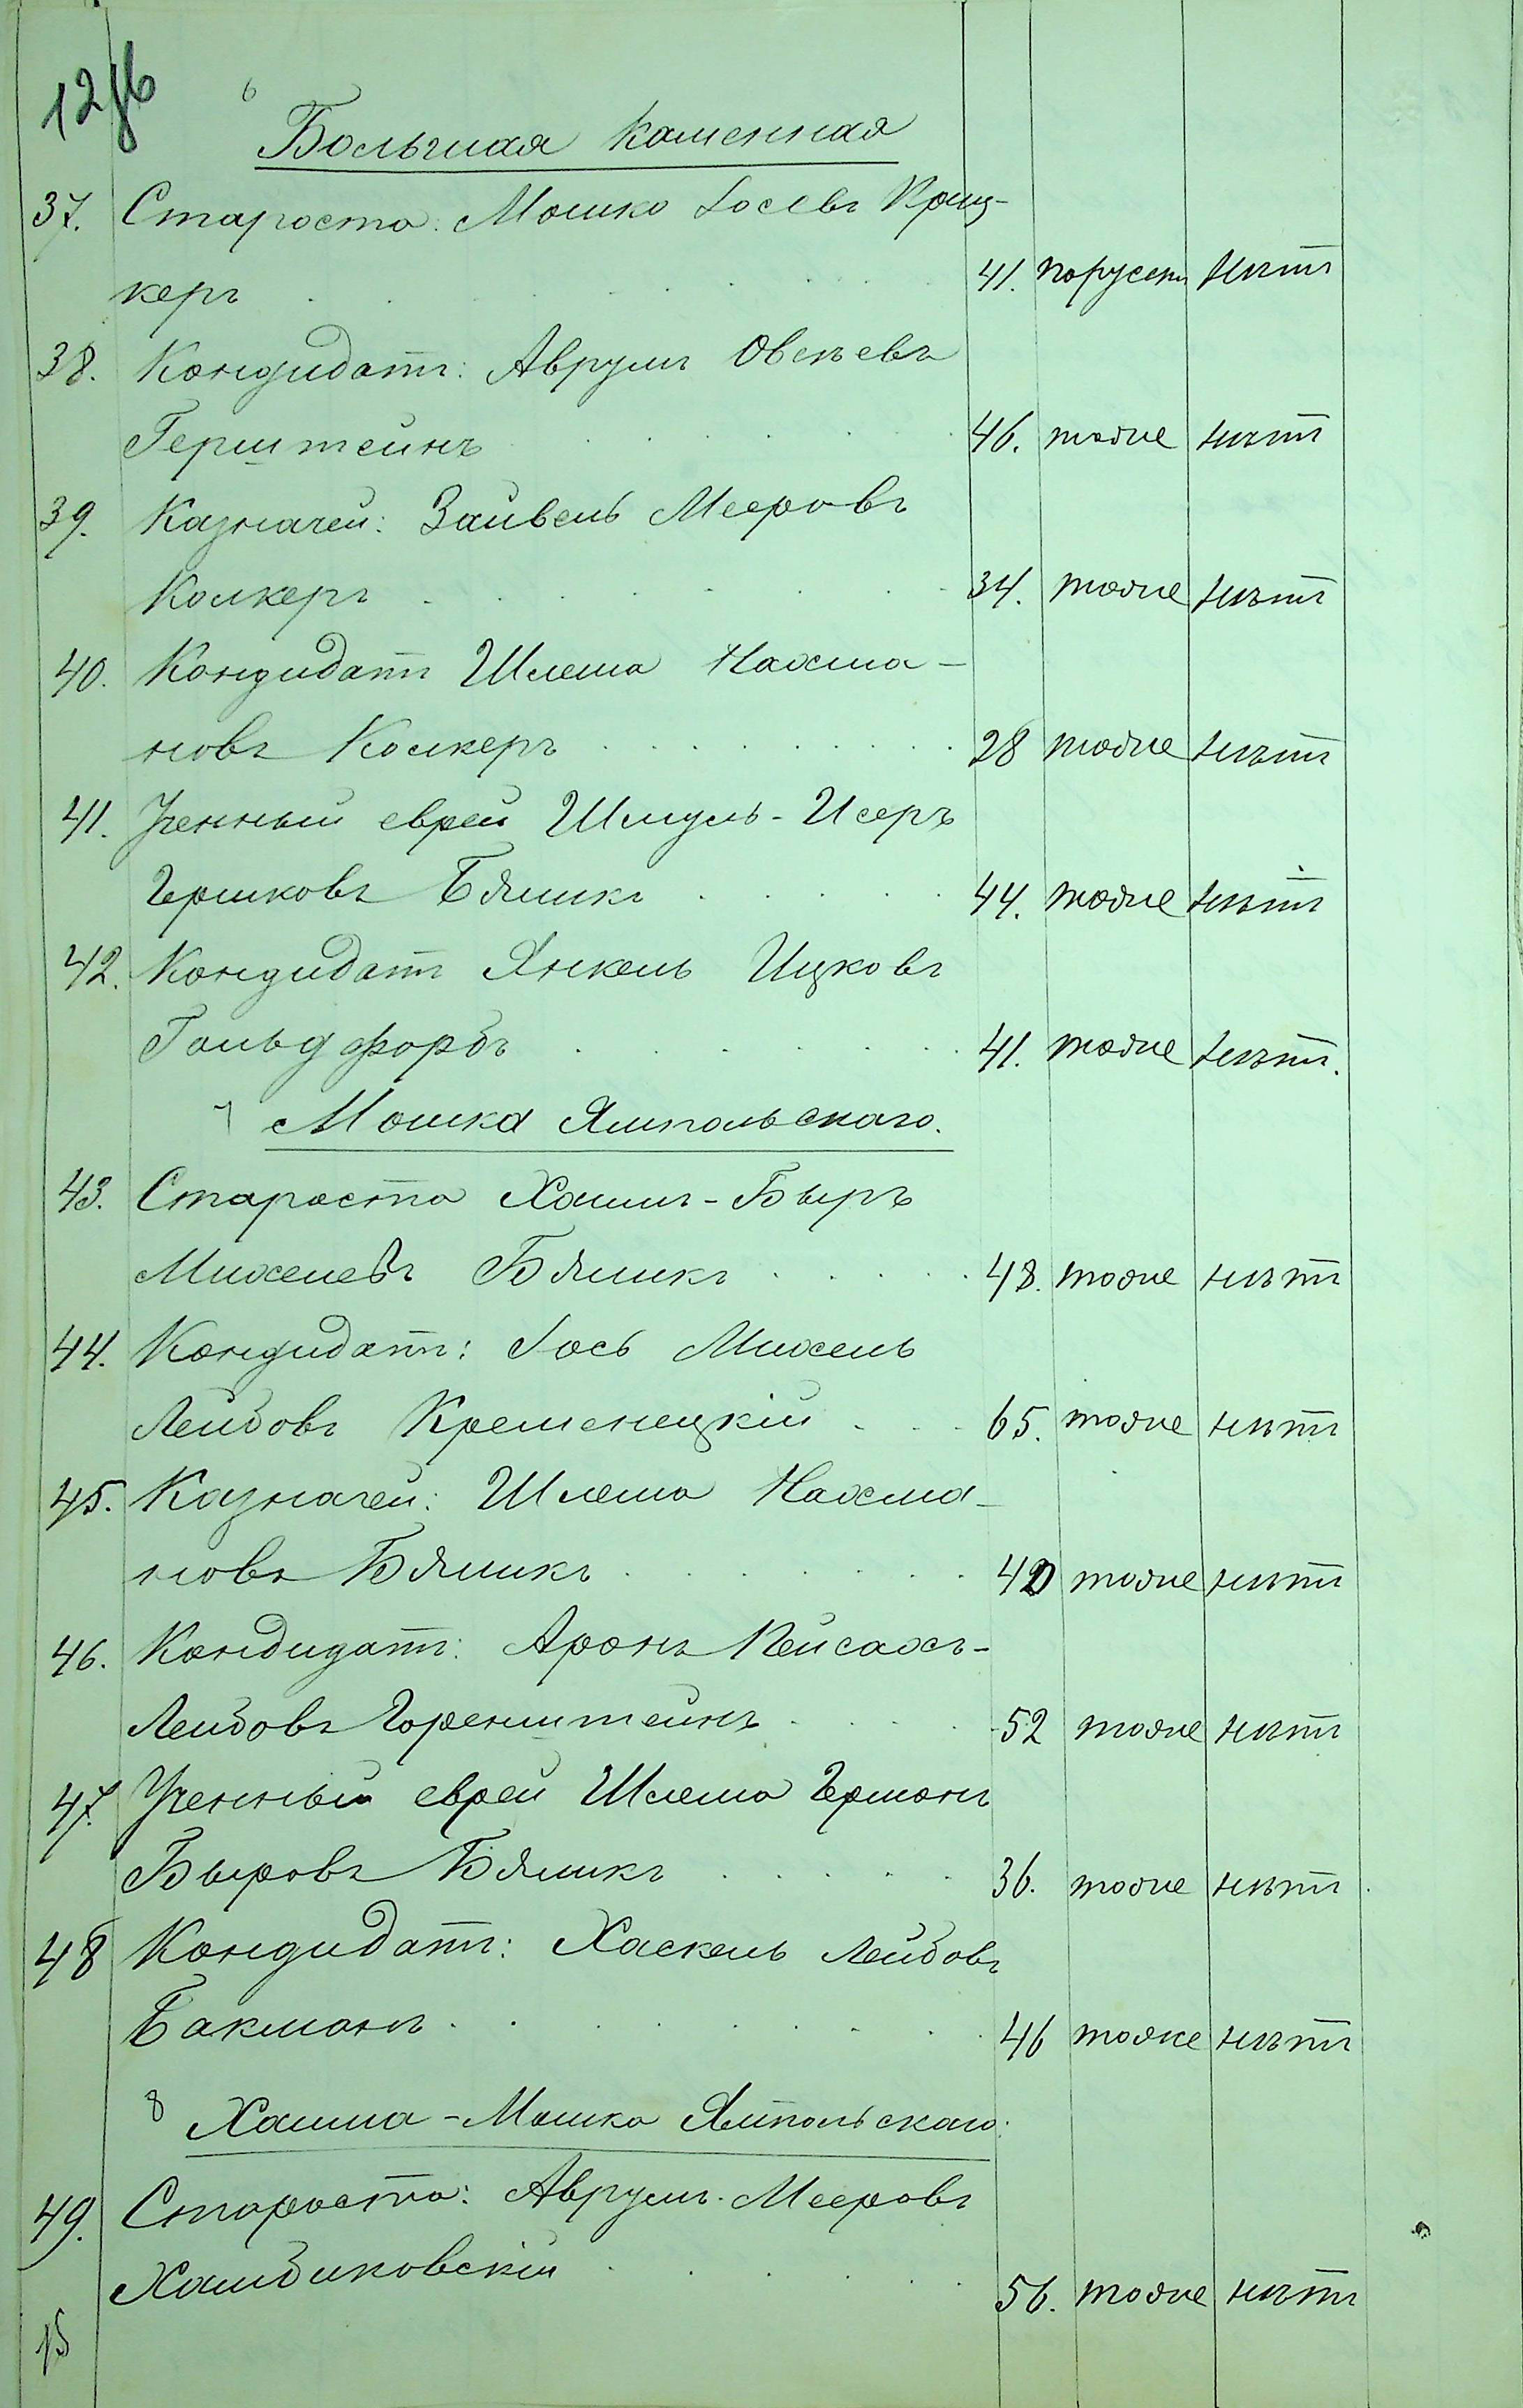 6
Большая Каменная
37. Староста: Мошко Iосевъ Криц-
керъ 41. порусски нѣтъ
38. Кандидатъ: Аврумъ Овсѣевъ
Герштейнъ 46. тоже нѣтъ
39. Казначей: Зайвель Мееровъ
Колкеръ 34. тоже нѣтъ
40. Кандидатъ Шлема Нахма-
новъ Колкеръ 28 тоже нѣтъ
41. Ученный еврей Шмуль-Исеръ
Гершковъ Бяликъ 44. тоже нѣтъ
42. Кандидатъ Янкель Ицковъ
Гольдфарбъ 41. тоже нѣтъ.
7 Мошка Ямпольскаго.
43. Староста Хаимъ-Быръ
Михелевъ Бяликъ 48. тоже нѣтъ
44. Кандидатъ: Iось Михель
Лейбовъ Кременецкiй 65. тоже нѣтъ
45. Казначей: Шлема Нахма-
новъ Бяликъ 42 тоже нѣтъ
46. Кандидатъ: Аронъ Пейсахъ-
Лейбовъ Горенштейнъ 52 тоже нѣтъ
47. Ученный еврей Шлема Германъ
Быровъ Бяликъ 36. тоже нѣтъ
48 Кандидатъ: Хаскель Лейбовъ
Бакманъ 46 тоже нѣтъ
8 Хаима-Мошка Ямпольскаго:
49. Староста: Аврумъ Мееровъ
Хаимзиковскiй 56. тоже нѣтъ
15